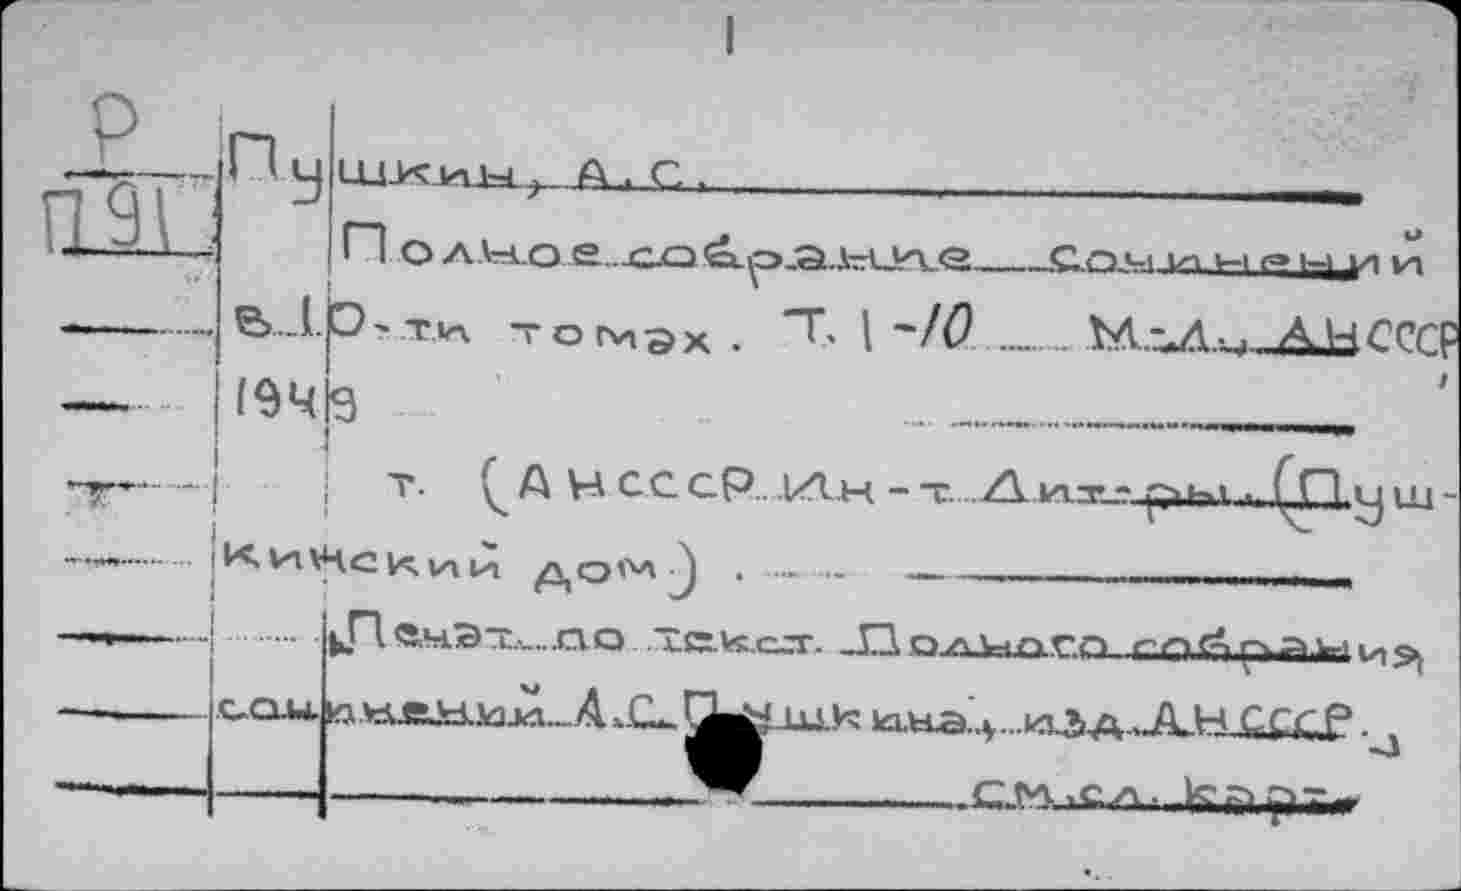 Р
П91
Пушкин, А. С.
Полное собрание сочинений
в 10-ти томах. Т. 1-10 М.-Л., АН СССР,
1949
т. (АН СССР. Ин-т Лит-ры. (Пуш-
кинский дом)).
Печат. по текст. Полного собрания
сочинений А.С. Пушкина, изд. АН СССР.
см. сл. карт.